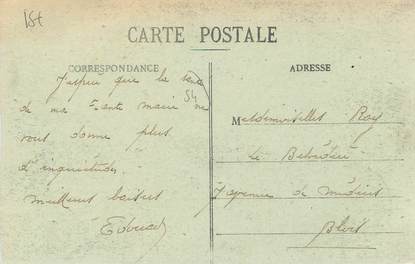 CARTE POSTALE
CORRESPONDANCE
ADRESSE
J'espère que la santé
de ma Tante Marie ne
vous donne plus
d'inquiétudes
meilleurs baisers
Edouard
54
Mesdemoiselles Roy
Le Belvédère
7 avenue de Médicis
Blois